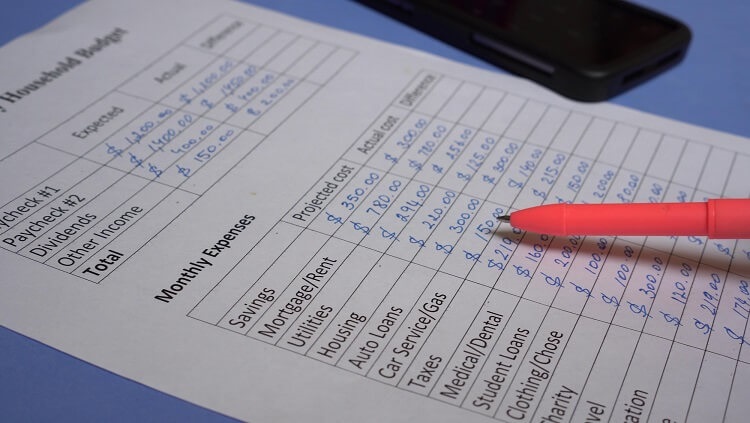 y Household Budget
Expected Actual Difference
ycheck #1 $ 1,200.00 $ 1,200.00
Paycheck #2 $ 1,400.00 $ 1,450.00
Dividends $ 400.00 $ 400.00
Other Income $ 150.00 $ 200.00
Total
Monthly Expenses
Projected cost Actual cost Difference
Savings $ 350.00 $ 300.00
Mortgage/Rent $ 780.00 $ 780.00
Utilities $ 294.00 $ 256.00
Housing $ 220.00 $ 125.00
Auto Loans $ 300.00 $ 300.00
Car Service/Gas $ 140.00
Taxes $ 215.00
Medical/Dental $ 150.00
Student Loans $ 200.00 200.00
Clothing/Chose $ 100.00 80.00
harity $ 100.00
vel $ 300.00
ation $ 120.00
$ 219.00